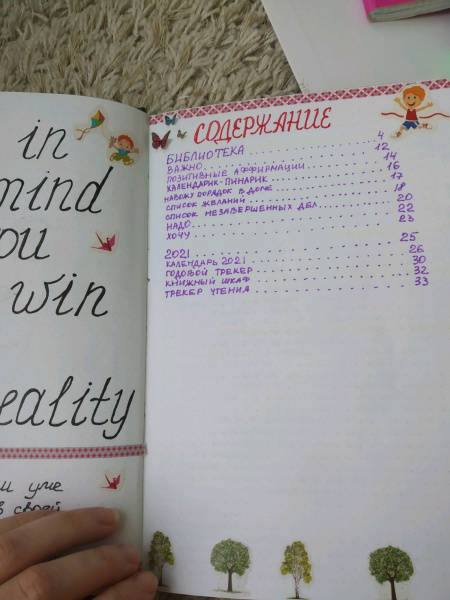 in
mind
ou
win
eality
и уже
в своей
СОДЕРЖАНИЕ
БИБЛИОТЕКА 4
ВАЖНО 12
ПОЗИТИВНЫЕ АФФИРМАЦИИ 14
КАЛЕНДАРИК-ПИНАРИК 16
НАВОЖУ ПОРЯДОК В ДОМЕ 17
СПИСОК ЖЕЛАНИЙ 18
СПИСОК НЕЗАВЕРШЕННЫХ ДЕЛ 20
НАДО 22
ХОЧУ 23
2021 25
КАЛЕНДАРЬ 2021 26
ГОДОВОЙ ТРЕКЕР 30
КНИЖНЫЙ ШКАФ 32
ТРЕКЕР ЧТЕНИЯ 33